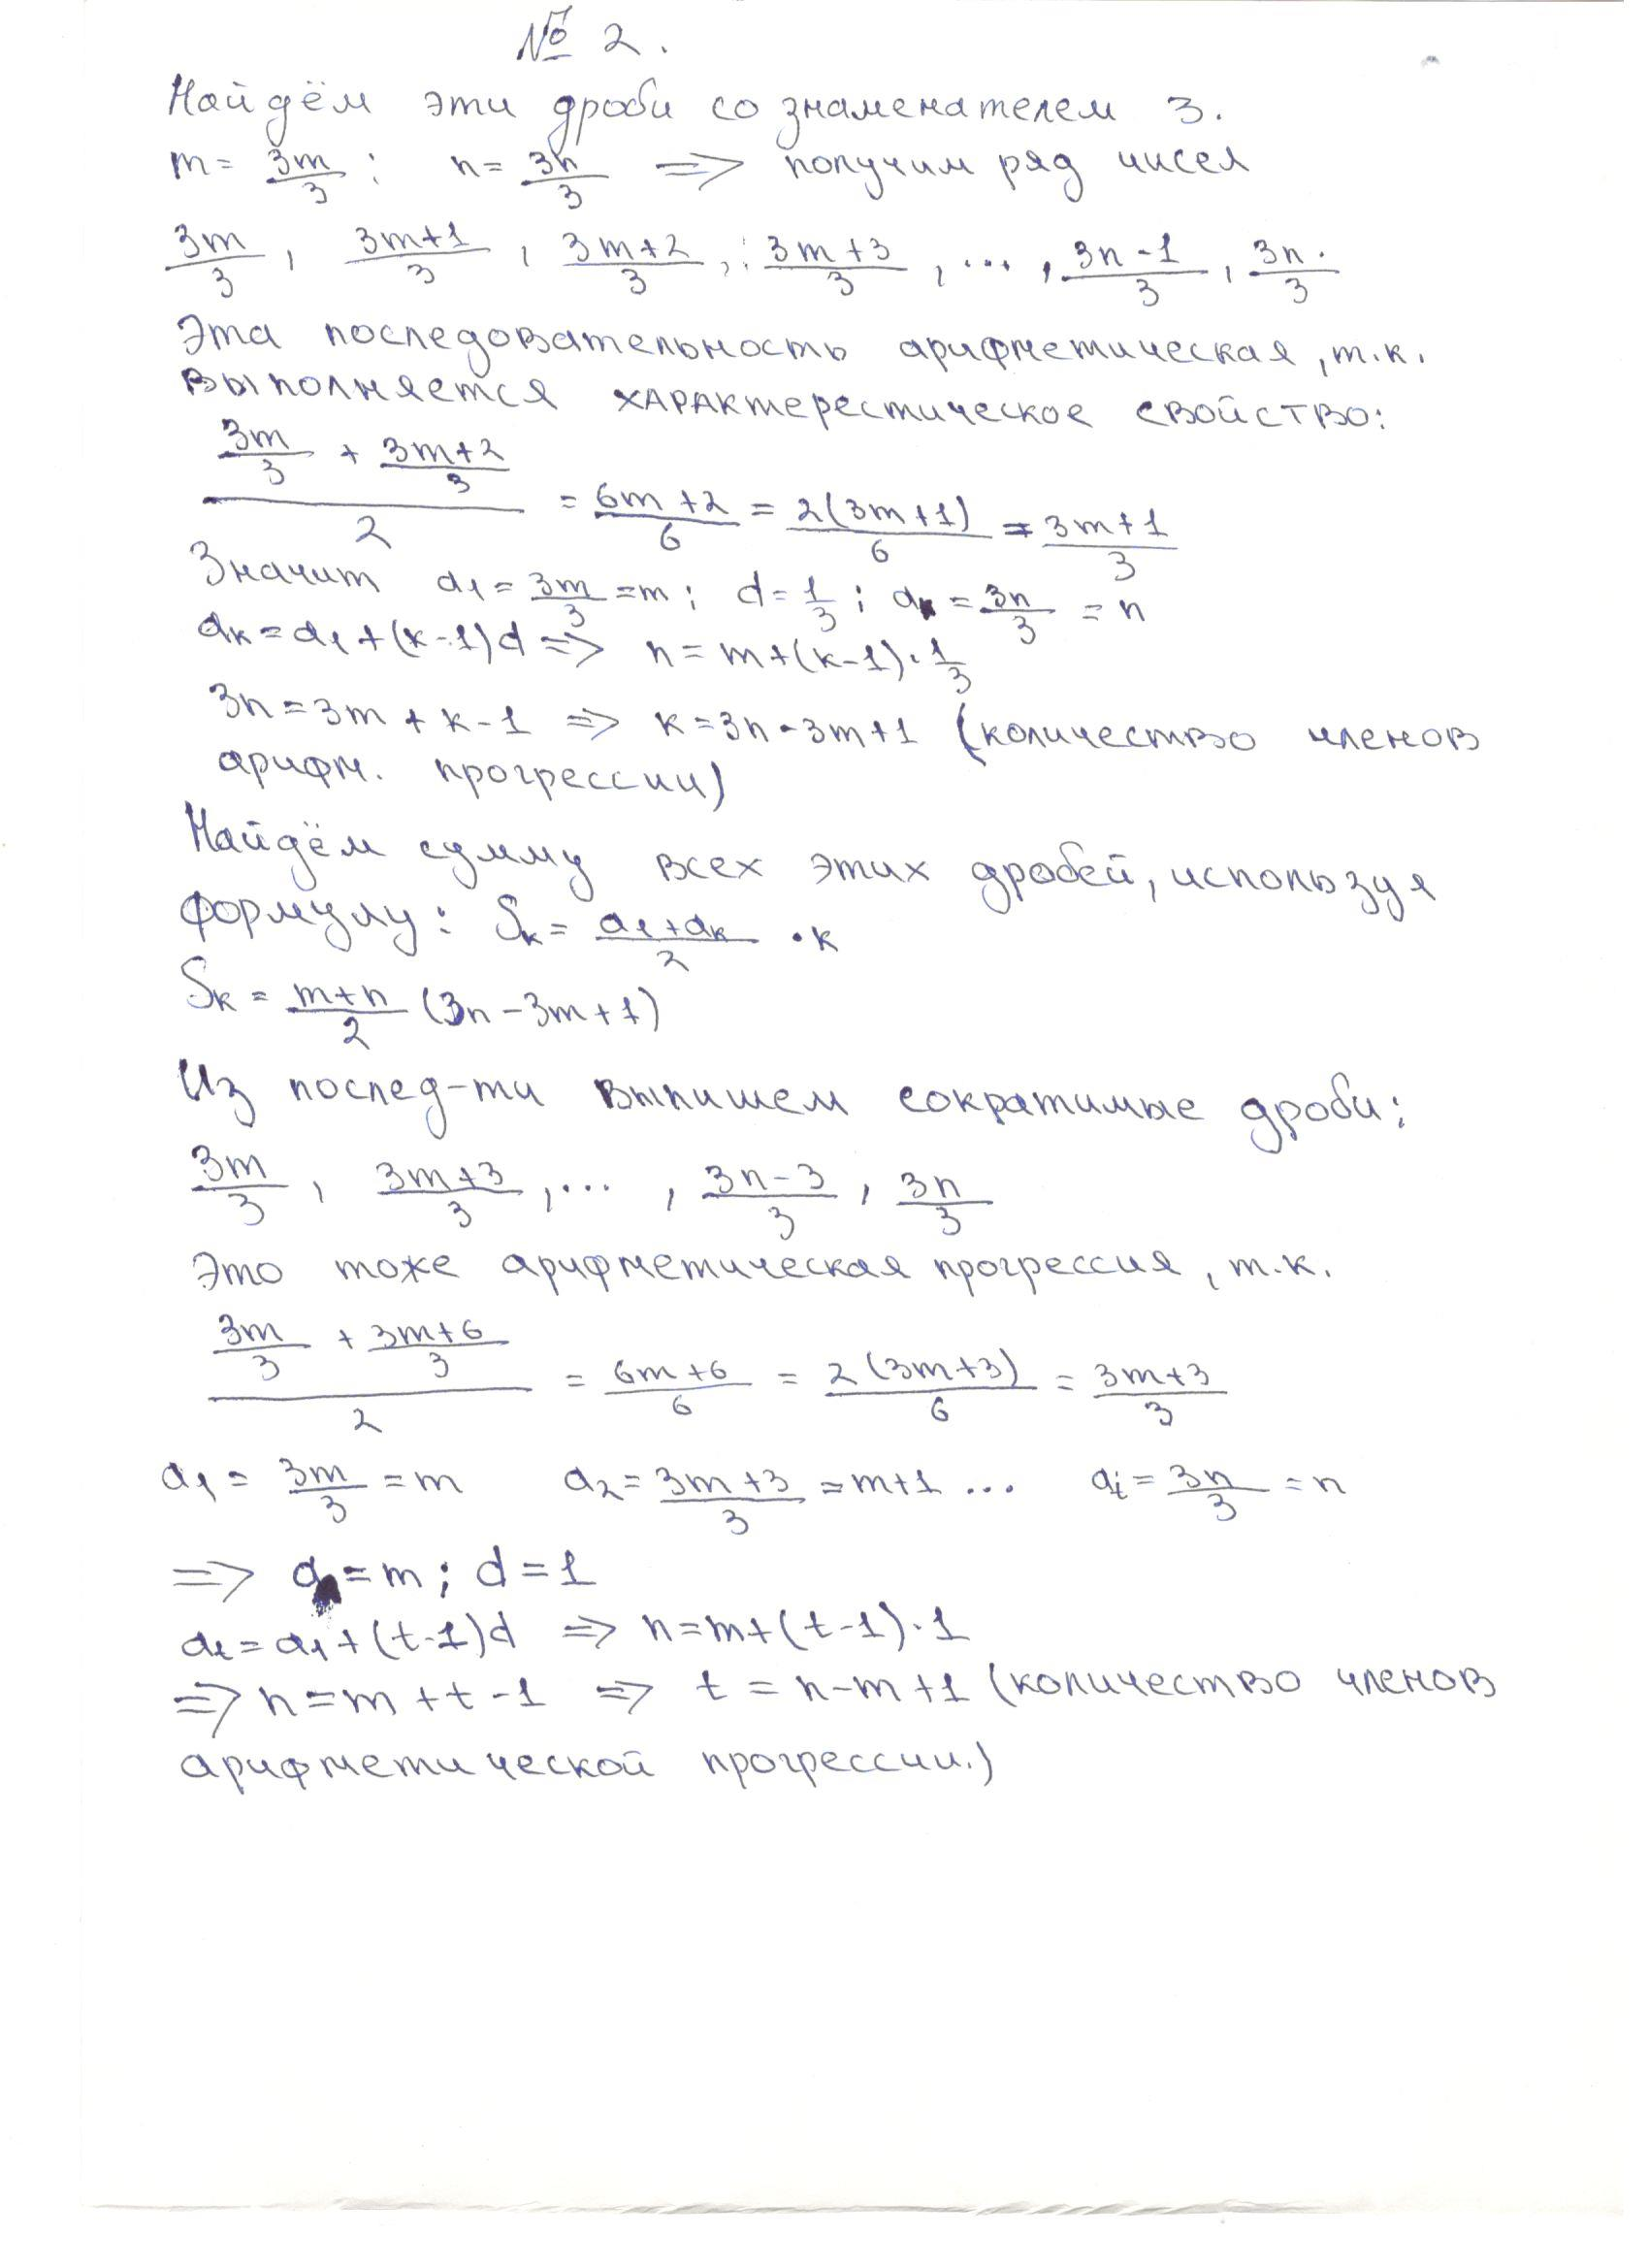 № 2.
Найдём эти дроби со знаменателем 3.
m = 3m/3; n = 3n/3 => получим ряд чисел
3m/3, 3m+1/3, 3m+2/3, 3m+3/3, ..., 3n-1/3, 3n/3.
Эта последовательность арифметическая, т.к.
выполняется характерестическое свойство:
(3m/3 + 3m+2/3)/2 = 6m+2/6 = 2(3m+1)/6 = 3m+1/3
Значит a₁ = 3m/3 = m; d = 1/3; aₖ = 3n/3 = n
aₖ = a₁ + (k-1)d => n = m + (k-1)·1/3
3n = 3m + k - 1 => k = 3n - 3m + 1 (количество членов
арифм. прогрессии)
Найдём сумму всех этих дробей, используя
формулу: Sₖ = a₁+aₖ/2 · k
Sₖ = m+n/2 (3n - 3m + 1)
Из послед-ти выпишем сократимые дроби:
3m/3, 3m+3/3, ..., 3n-3/3, 3n/3
Это тоже арифметическая прогрессия, т.к.
(3m/3 + 3m+6/3)/2 = 6m+6/6 = 2(3m+3)/6 = 3m+3/3
a₁ = 3m/3 = m a₂ = 3m+3/3 = m+1 ... aₜ = 3n/3 = n
=> a₁ = m; d = 1
aₜ = a₁ + (t-1)d => n = m + (t-1)·1
=> n = m + t - 1 => t = n - m + 1 (количество членов
арифметической прогрессии.)